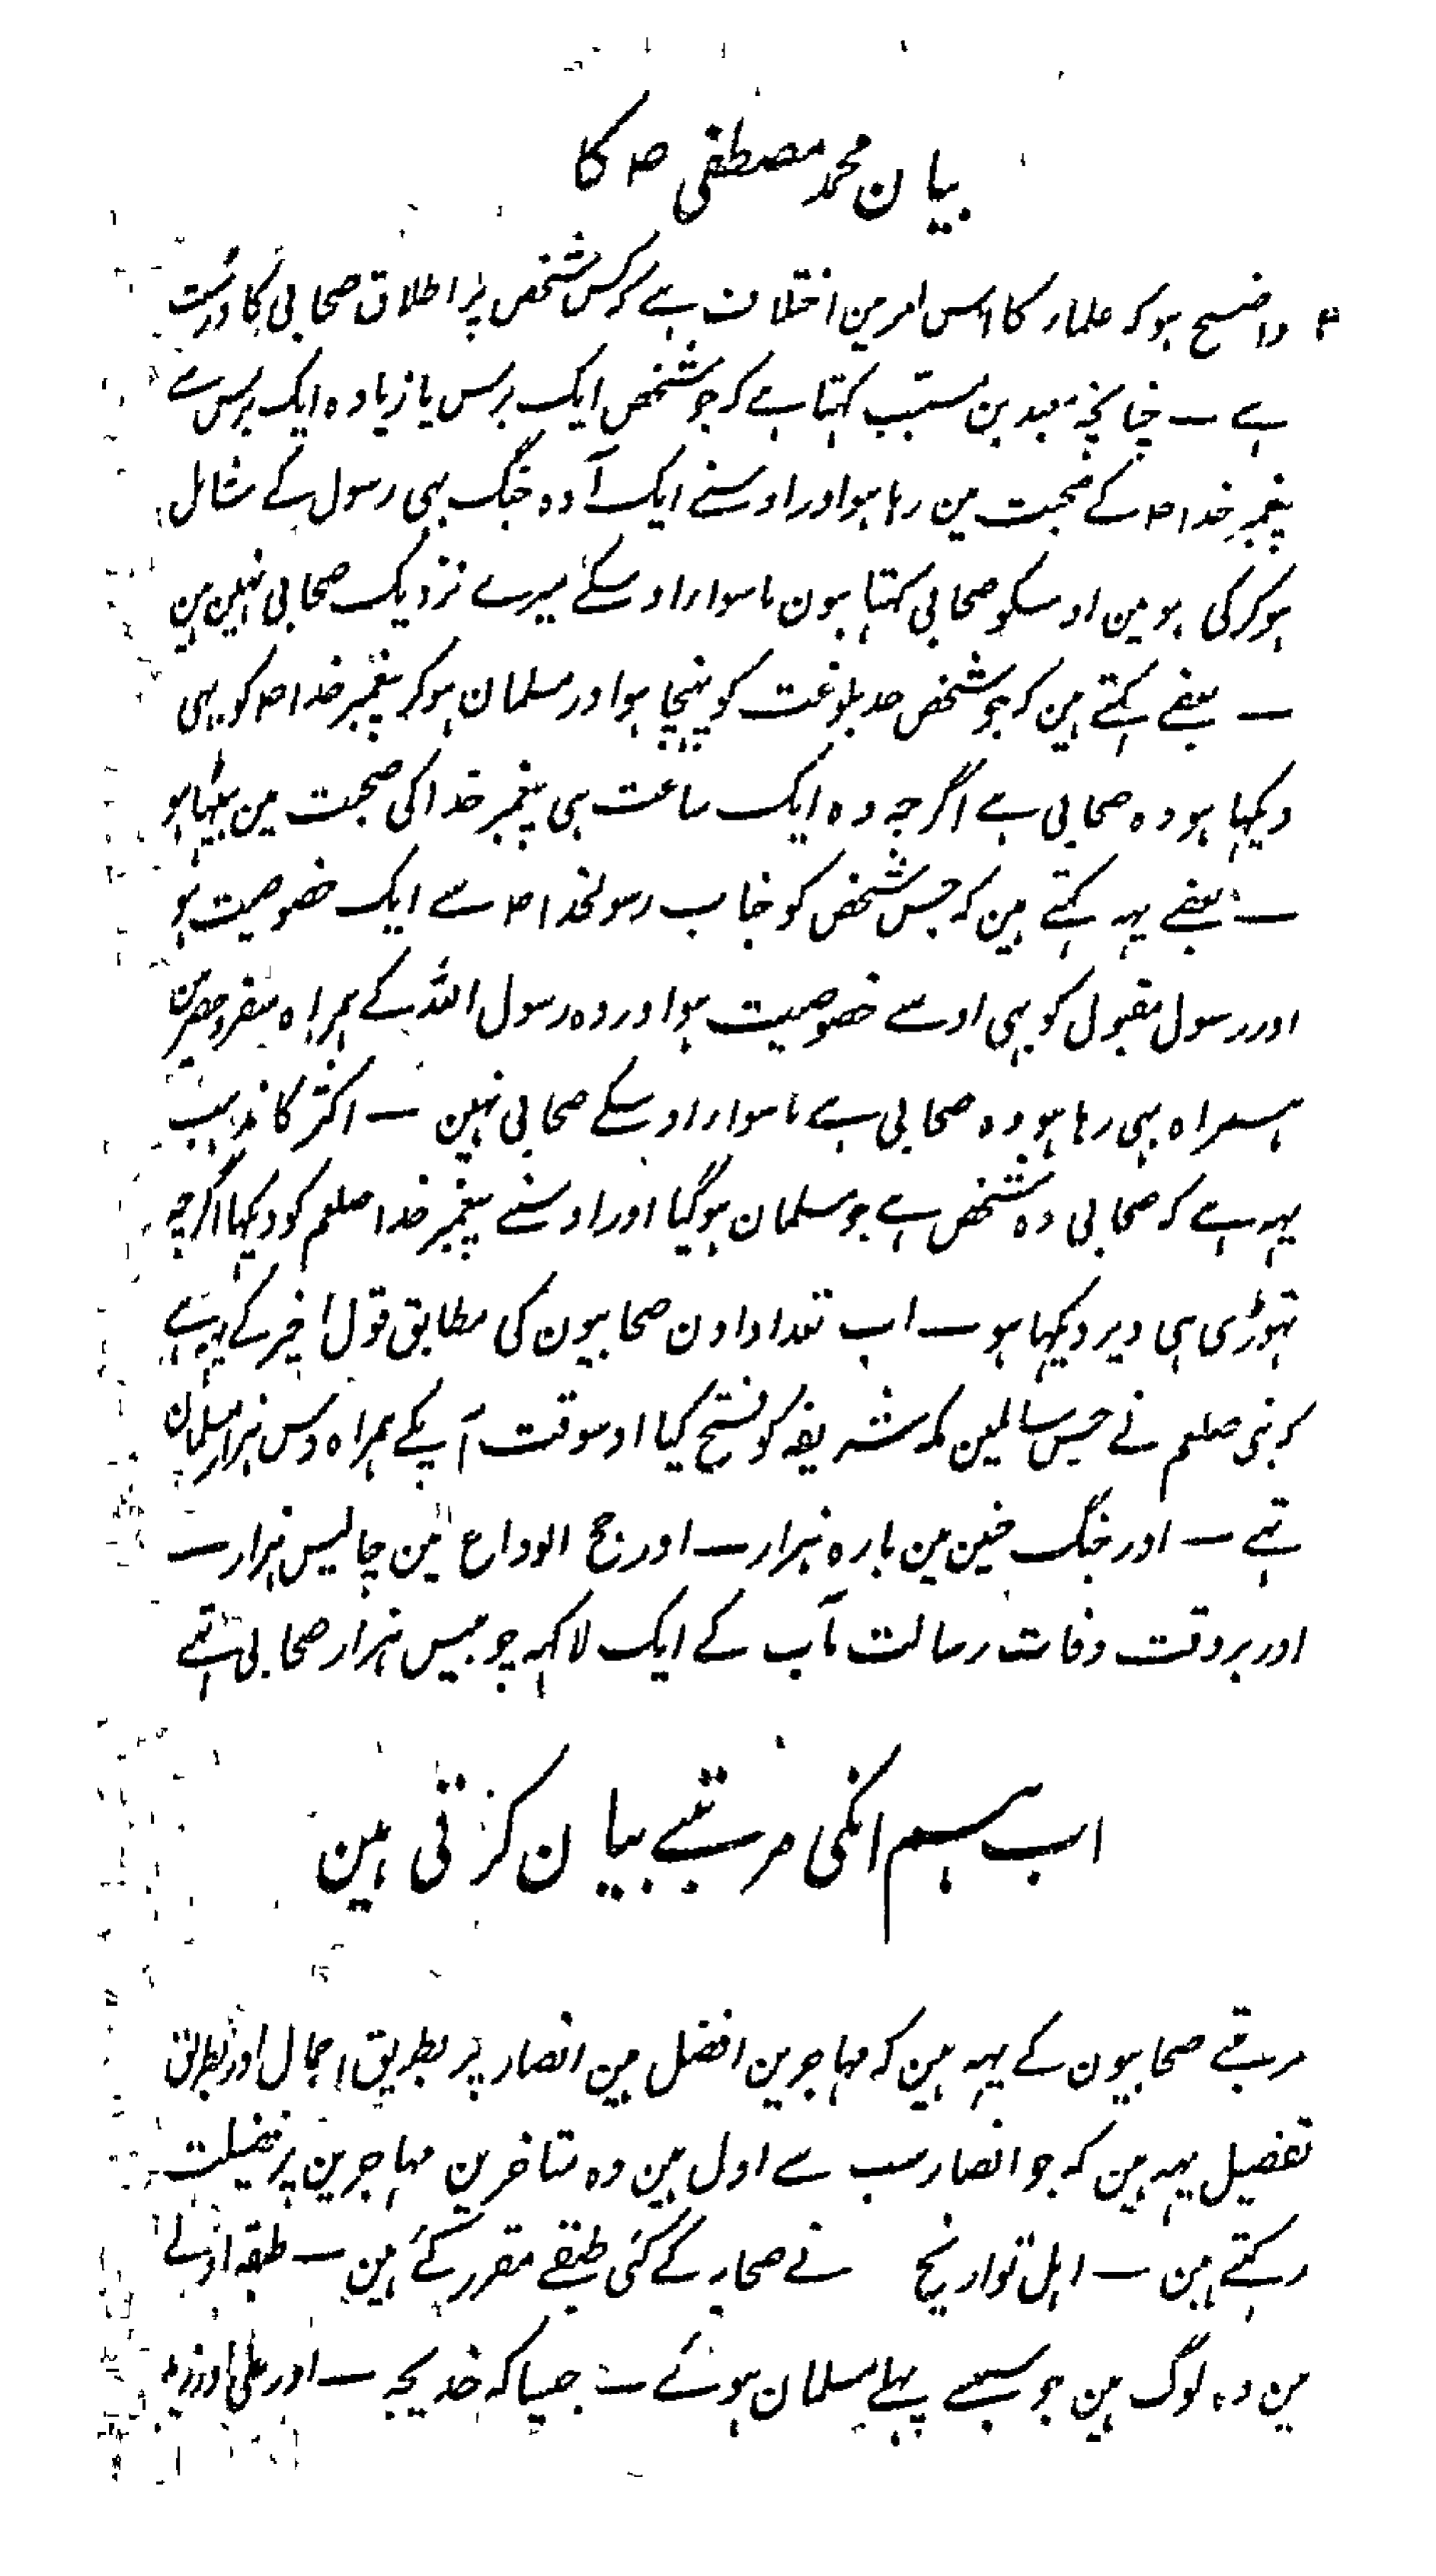 بیان محمد مصطفی ص کا
۴ واضح ہو کہ علماء کا اس امر مین اختلاف ہے کہ کس شخص پر اطلاق صحابی کا درست
ہے — چنانچہ سعید بن مسیب کہتا ہے کہ جو شخص ایک برس یا زیادہ ایک برس سے
پیغمبر خدا ص کے صحبت مین رہا ہو اور اوسنے ایک آدہ جنگ بہی رسول کے شامل
ہو کر کی ہو مین اوسکو صحابی کہتا ہون ماسوار اوسکے میرے نزدیک صحابی نہین ہین
— بعضے کہتے ہین کہ جو شخص حد بلوغت کو پہنچا ہو اور مسلمان ہو کر پیغمبر خدا ص کو بہی
دیکہا ہو وہ صحابی ہے اگرچہ وہ ایک ساعت ہی پیغمبر خدا کی صحبت مین بیٹہا ہو
— بعضے یہہ کہتے ہین کہ جس شخص کو جناب رسولخدا ص سے ایک خصوصیت ہو
اور رسول مقبول کو بہی اوسے خصوصیت ہو اور وہ رسول اللہ کے ہمراہ سفر و حضر مین
ہمراہ بہی رہا ہو وہ صحابی ہے ماسوار اوسکے صحابی نہین — اکثر کا مذہب
یہہ ہے کہ صحابی وہ شخص ہے جو مسلمان ہو گیا اور اوسنے پیغمبر خدا صلعم کو دیکہا اگرچہ
تہوڑی ہی دیر دیکہا ہو — اب تعداد اون صحابیون کی مطابق قول اخیر کے یہہ ہے
کہ نبی صلعم نے جس سالمین مکہ شریفہ کو فتح کیا اوسوقت آپکے ہمراہ دس ہزار مسلمان
تہے — اور جنگ حنین مین بارہ ہزار — اور حج الوداع مین چالیس ہزار —
اور بروقت وفات رسالت مآب کے ایک لاکہہ چوبیس ہزار صحابی تہے
اب ہم انکی مرتبے بیان کرتی ہین
مرتبے صحابیون کے یہہ ہین کہ مہاجرین افضل ہین انصار پر بطریق اجمال اور بطریق
تفصیل یہہ ہین کہ جو انصار سب سے اول ہین وہ متاخرین مہاجرین پر فضیلت
رکہتے ہین — اہل تواریخ نے صحابہ کے کئی طبقے مقرر کئے ہین — طبقہ اولے
مین وہ لوگ ہین جو سبسے پہلے مسلمان ہوئے — جیسا کہ خدیجہ — اور علی اور زید